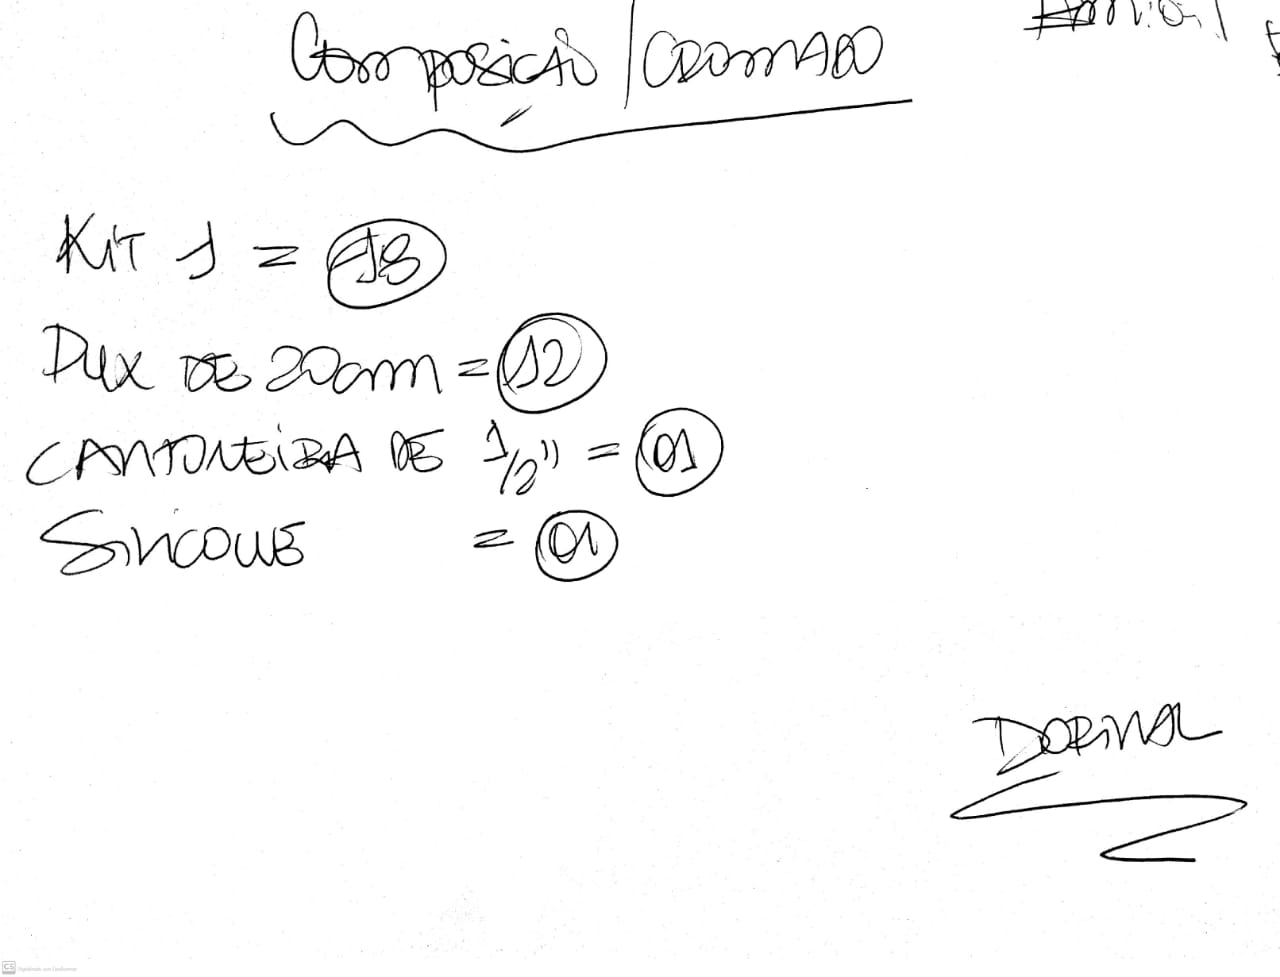 Composição / CROMADO
KIT 1 = 18
Dux DE 20cm = 12
CANTONEIRA DE 1/2" = 01
SiliCONE = 01
DORIVAL
CS Digitalizado com CamScanner